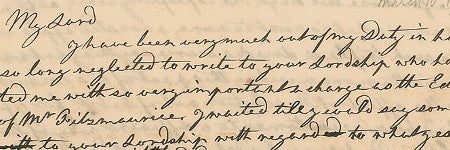 March 10. 1
My Lord
I have been very much out of my Duty in ha
so long neglected to write to your Lordship who ha
ted me with so very important a charge as the Ed
of Mr Fitzmaurice. I waited till I could say som
with to your Lordship with regard to what es